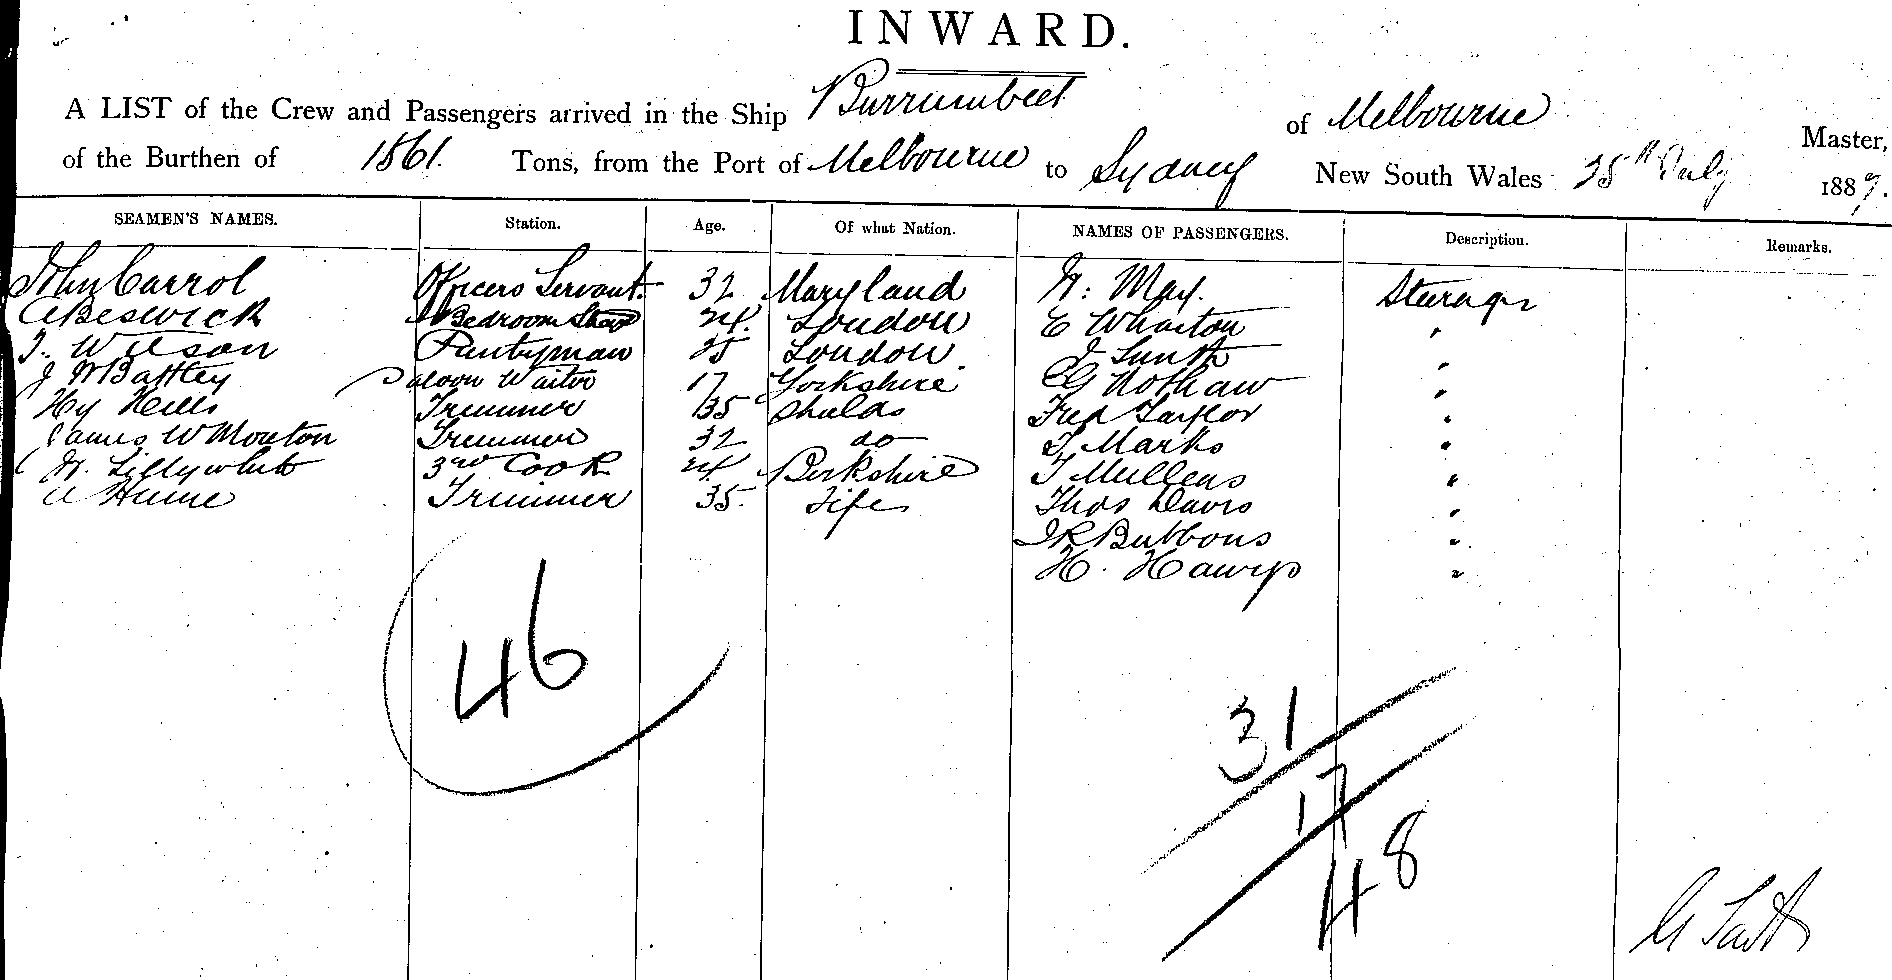 INWARD.
A LIST of the Crew and Passengers arrived in the Ship Burrumbeet of Melbourne Master,
of the Burthen of 1861. Tons, from the Port of Melbourne to Sydney New South Wales July 188
SEAMEN'S NAMES. Station. Age. Of what Nation. NAMES OF PASSENGERS. Description. Remarks.
John Carrol Officers Servant 32 Maryland W: May. Steerage
A Beswick Bedroom 24 London E Wharton "
T. Wilson Pantryman 25 London J Smith "
J W Battley Saloon Waiter 17 Yorkshire "
Hy Hills Trimmer 35 Shields Fred Taylor "
James W Mouton Trimmer 32 do T Marks "
W. Lillywhite 3rd Cook 24 Berkshire T Mullens "
A Hume Trimmer 35. Fife Thos Davis "
J R Bubbons "
H. "
46
31
17
48